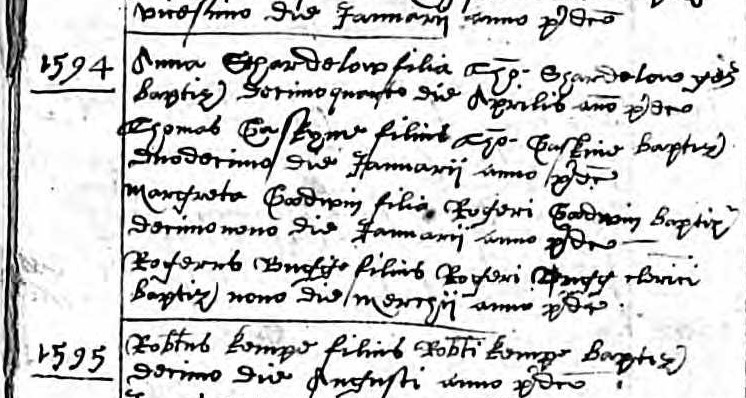 vicesimo die Januarii anno p'dco
1594 Anna Shardelow filia Tho. Shardelow
baptiz decimo quarto die Aprilis ano p'dco
Thomas Gaskyne filius Tho. Gaskine baptiz
duodecimo die Januarii anno p'dco
Margreta Goodwin filia Rogeri Goodwin baptiz
decimo nono die Januarii anno p'dco
Rogerus filius Rogeri clerici
baptiz nono die Merchii anno p'dco
1595 Robtus Kempe filius Robti Kempe baptiz
decimo die Augusti anno p'dco